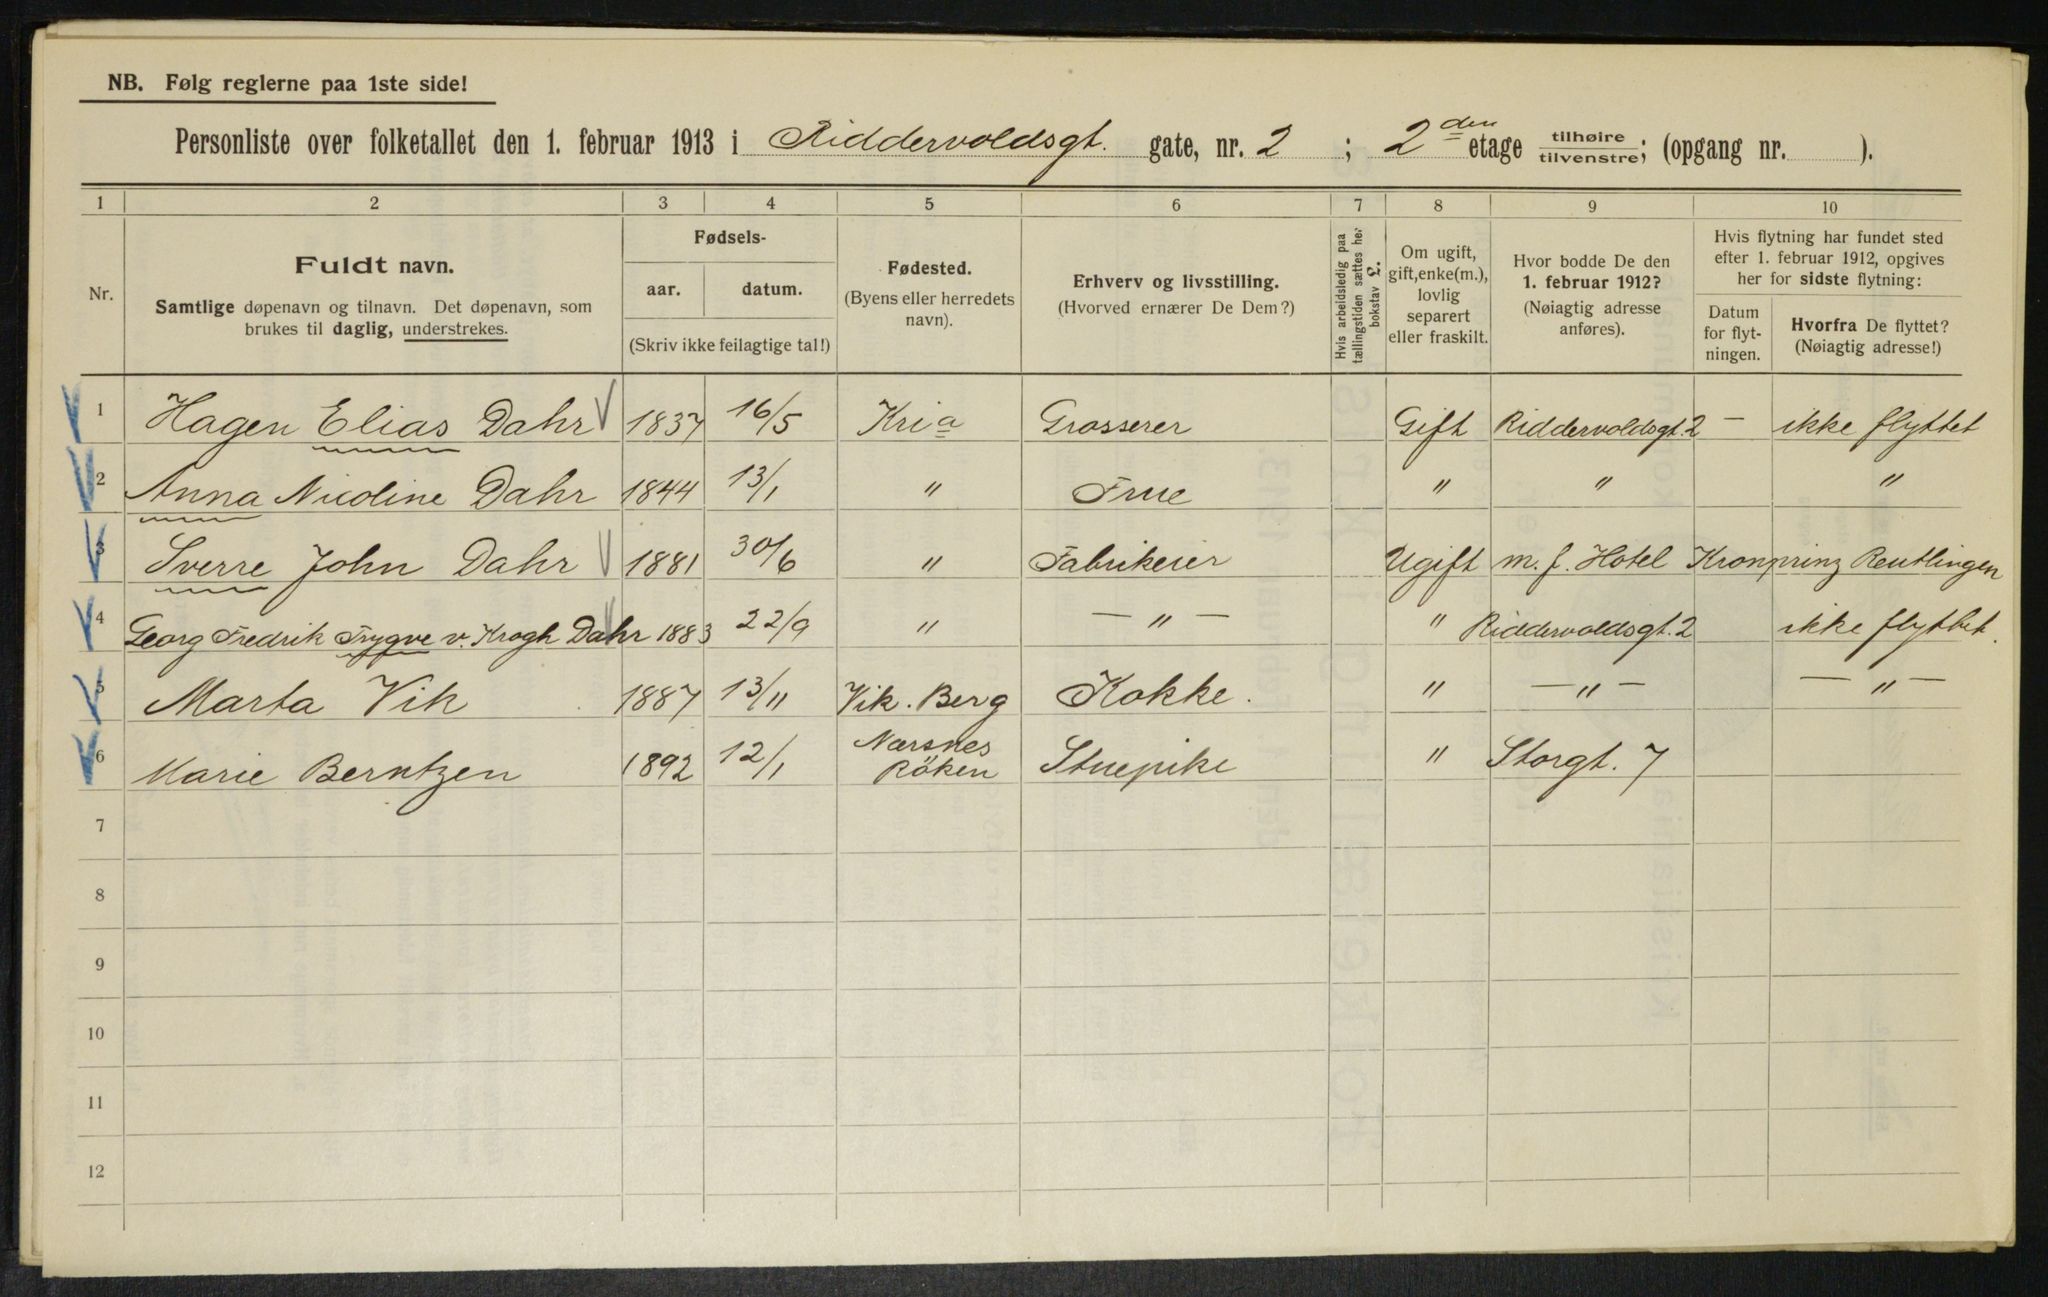 NB. Følg reglerne paa 1ste side!
Personliste over folketallet den 1. februar 1913 i Riddervoldsgt. gate, nr. 2 ; 2den etage tilhøire / tilvenstre; (opgang nr. ).
1 2 3 4 5 6 7 8 9 10
Nr.
Fuldt navn.
Samtlige døpenavn og tilnavn. Det døpenavn, som
brukes til daglig, understrekes.
Fødsels-
aar. datum.
(Skriv ikke feilagtige tal!)
Fødested.
(Byens eller herredets
navn).
Erhverv og livsstilling.
(Hvorved ernærer De Dem?)
Hvis arbeidsledig paa
tællingstiden sættes her
bokstav L.
Om ugift,
gift, enke(m.),
lovlig
separert
eller fraskilt.
Hvor bodde De den
1. februar 1912?
(Nøiagtig adresse
anføres).
Hvis flytning har fundet sted
efter 1. februar 1912, opgives
her for sidste flytning:
Datum
for flyt-
ningen.
Hvorfra De flyttet?
(Nøiagtig adresse!)
1 Hagen Elias Dahr 1837 16/5 Kria Grosserer Gift Riddervoldsgt. 2 — ikke flyttet
2 Anna Nicoline Dahr 1844 13/1 " Frue " " "
3 Sverre John Dahr 1881 30/6 " Fabrikeier Ugift m. f. Hotel Kronprinz Reutlingen
4 Georg Fredrik Trygve v. Krogh Dahr 1883 22/9 " — " — " Riddervoldsgt. 2 ikke flyttet.
5 Marta Vik 1887 13/11 Vik. Berg Kokke. " — " — — " —
6 Marie Berntzen 1892 12/1 Nærsnes Röken Stuepike " Storgt. 7
7
8
9
10
11
12